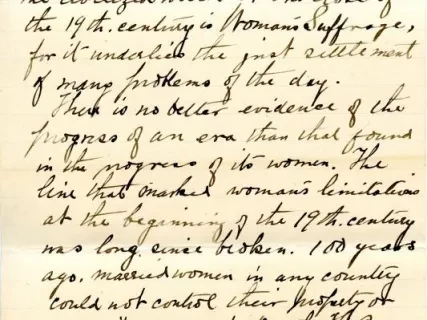 the 19th. century is Woman's Suffrage,
for it underlies the just settlement
of many problems of the day.
There is no better evidence of the
progress of an era than that found
in the progress of its women. The
line that marked woman's limitations
at the beginning of the 19th. century
was long since broken. 100 years
ago. married women in any country
could not control their property or